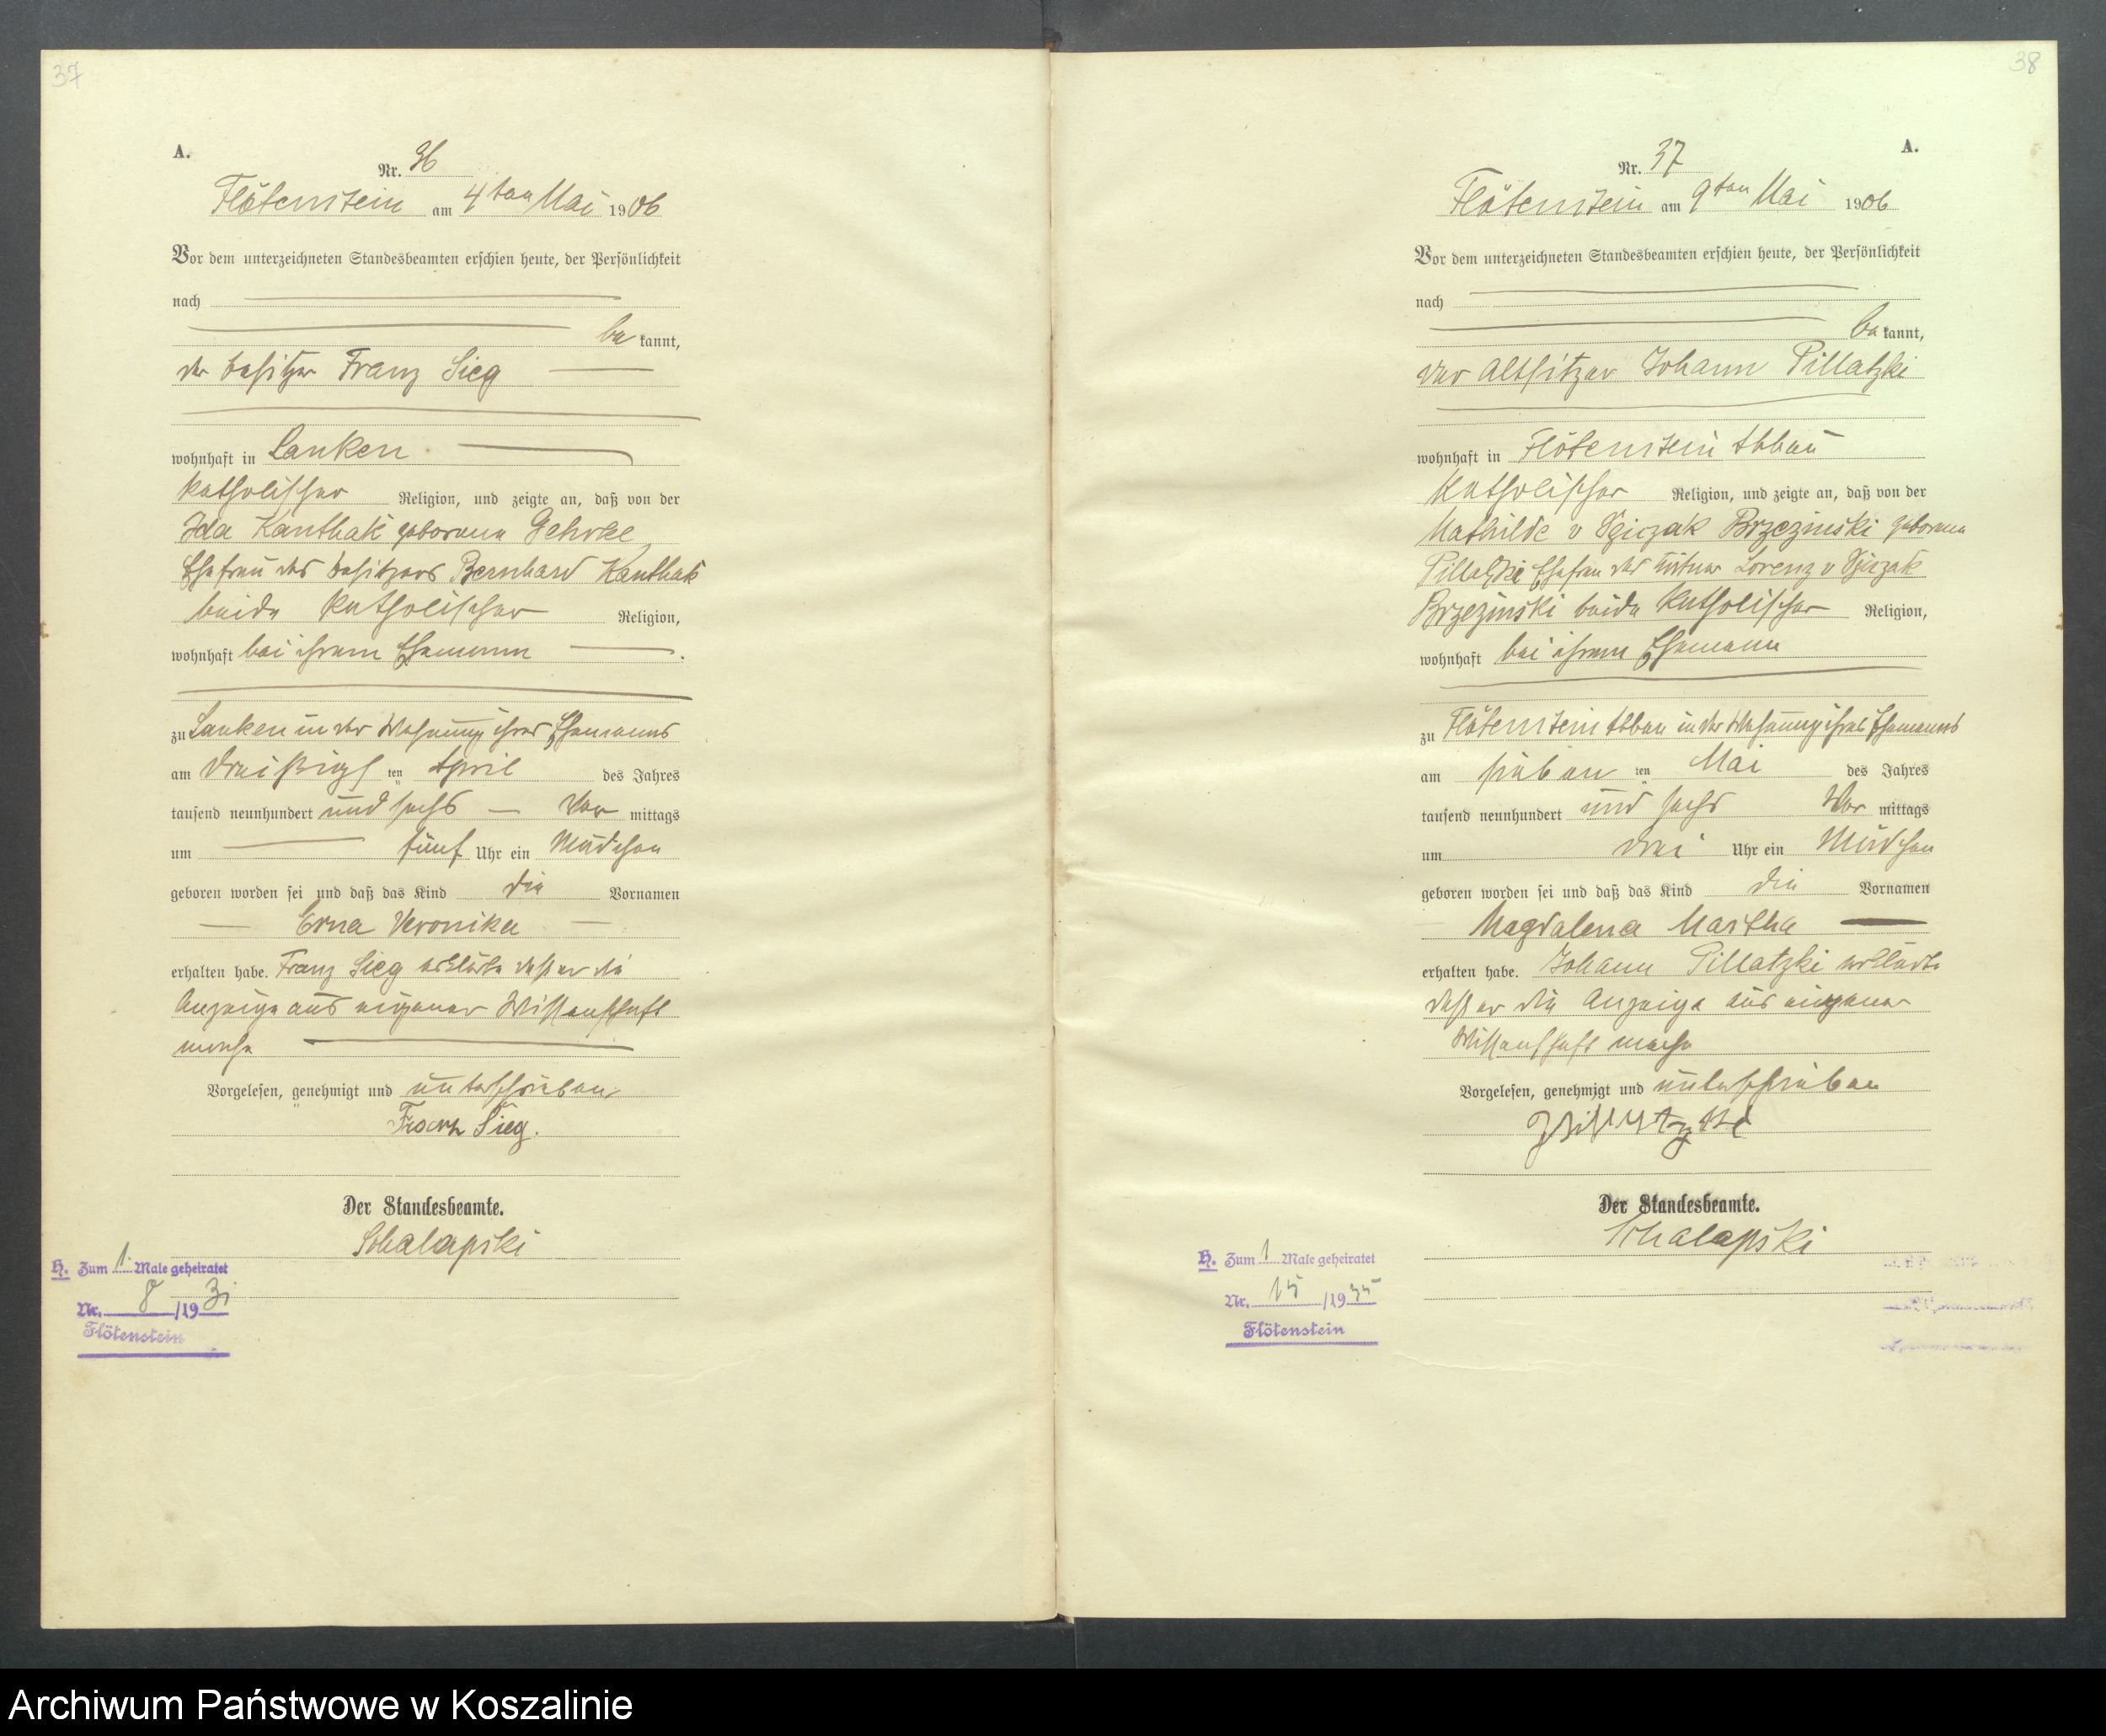 37
A.
Nr. 36
Flötenstein am 4ten Mai 1906
Vor dem unterzeichneten Standesbeamten erschien heute, der Persönlichkeit
nach
be kannt,
der Besitzer Franz Sieg
wohnhaft in Lanken
katholischer Religion, und zeigte an, daß von der
Ida Kanthak geborene Gehrke
Ehefrau des Besitzers Bernhard Kanthak
beide katholischer Religion,
wohnhaft bei ihrem Ehemann
zu Lanken in der Wohnung ihres Ehemanns
am dreißigsten April des Jahres
tausend neunhundert und sechs Vor mittags
um fünf Uhr ein Mädchen
geboren worden sei und daß das Kind die Vornamen
Erna Veronika
erhalten habe. Franz Sieg erklärte daß er die
Anzeige aus eigener Wissenschaft
mache
Vorgelesen, genehmigt und unterschrieben
Franz Sieg.
Der Standesbeamte.
Schalapski
H. Zum 1. Male geheiratet
Nr. 8 /1931
Flötenstein
38
A.
Nr. 37
Flötenstein am 9ten Mai 1906
Vor dem unterzeichneten Standesbeamten erschien heute, der Persönlichkeit
nach
be kannt,
der Altsitzer Johann Pillatzki
wohnhaft in Flötenstein Abbau
katholischer Religion, und zeigte an, daß von der
Mathilde v Brzezinski geborene
Pillatzki Ehefrau des Lorenz v
Brzezinski beide katholischer Religion,
wohnhaft bei ihrem Ehemann
zu Flötenstein Abbau in der Wohnung ihres Ehemanns
am sieben ten Mai des Jahres
tausend neunhundert und sechs Vor mittags
um drei Uhr ein Mädchen
geboren worden sei und daß das Kind die Vornamen
Magdalena Martha
erhalten habe. Johann Pillatzki erklärte
daß er die Anzeige aus eigener
Wissenschaft mache
Vorgelesen, genehmigt und unterschrieben
Der Standesbeamte.
Schalapski
H. Zum 1 Male geheiratet
Nr. 15 /19
Flötenstein
Archiwum Państwowe w Koszalinie